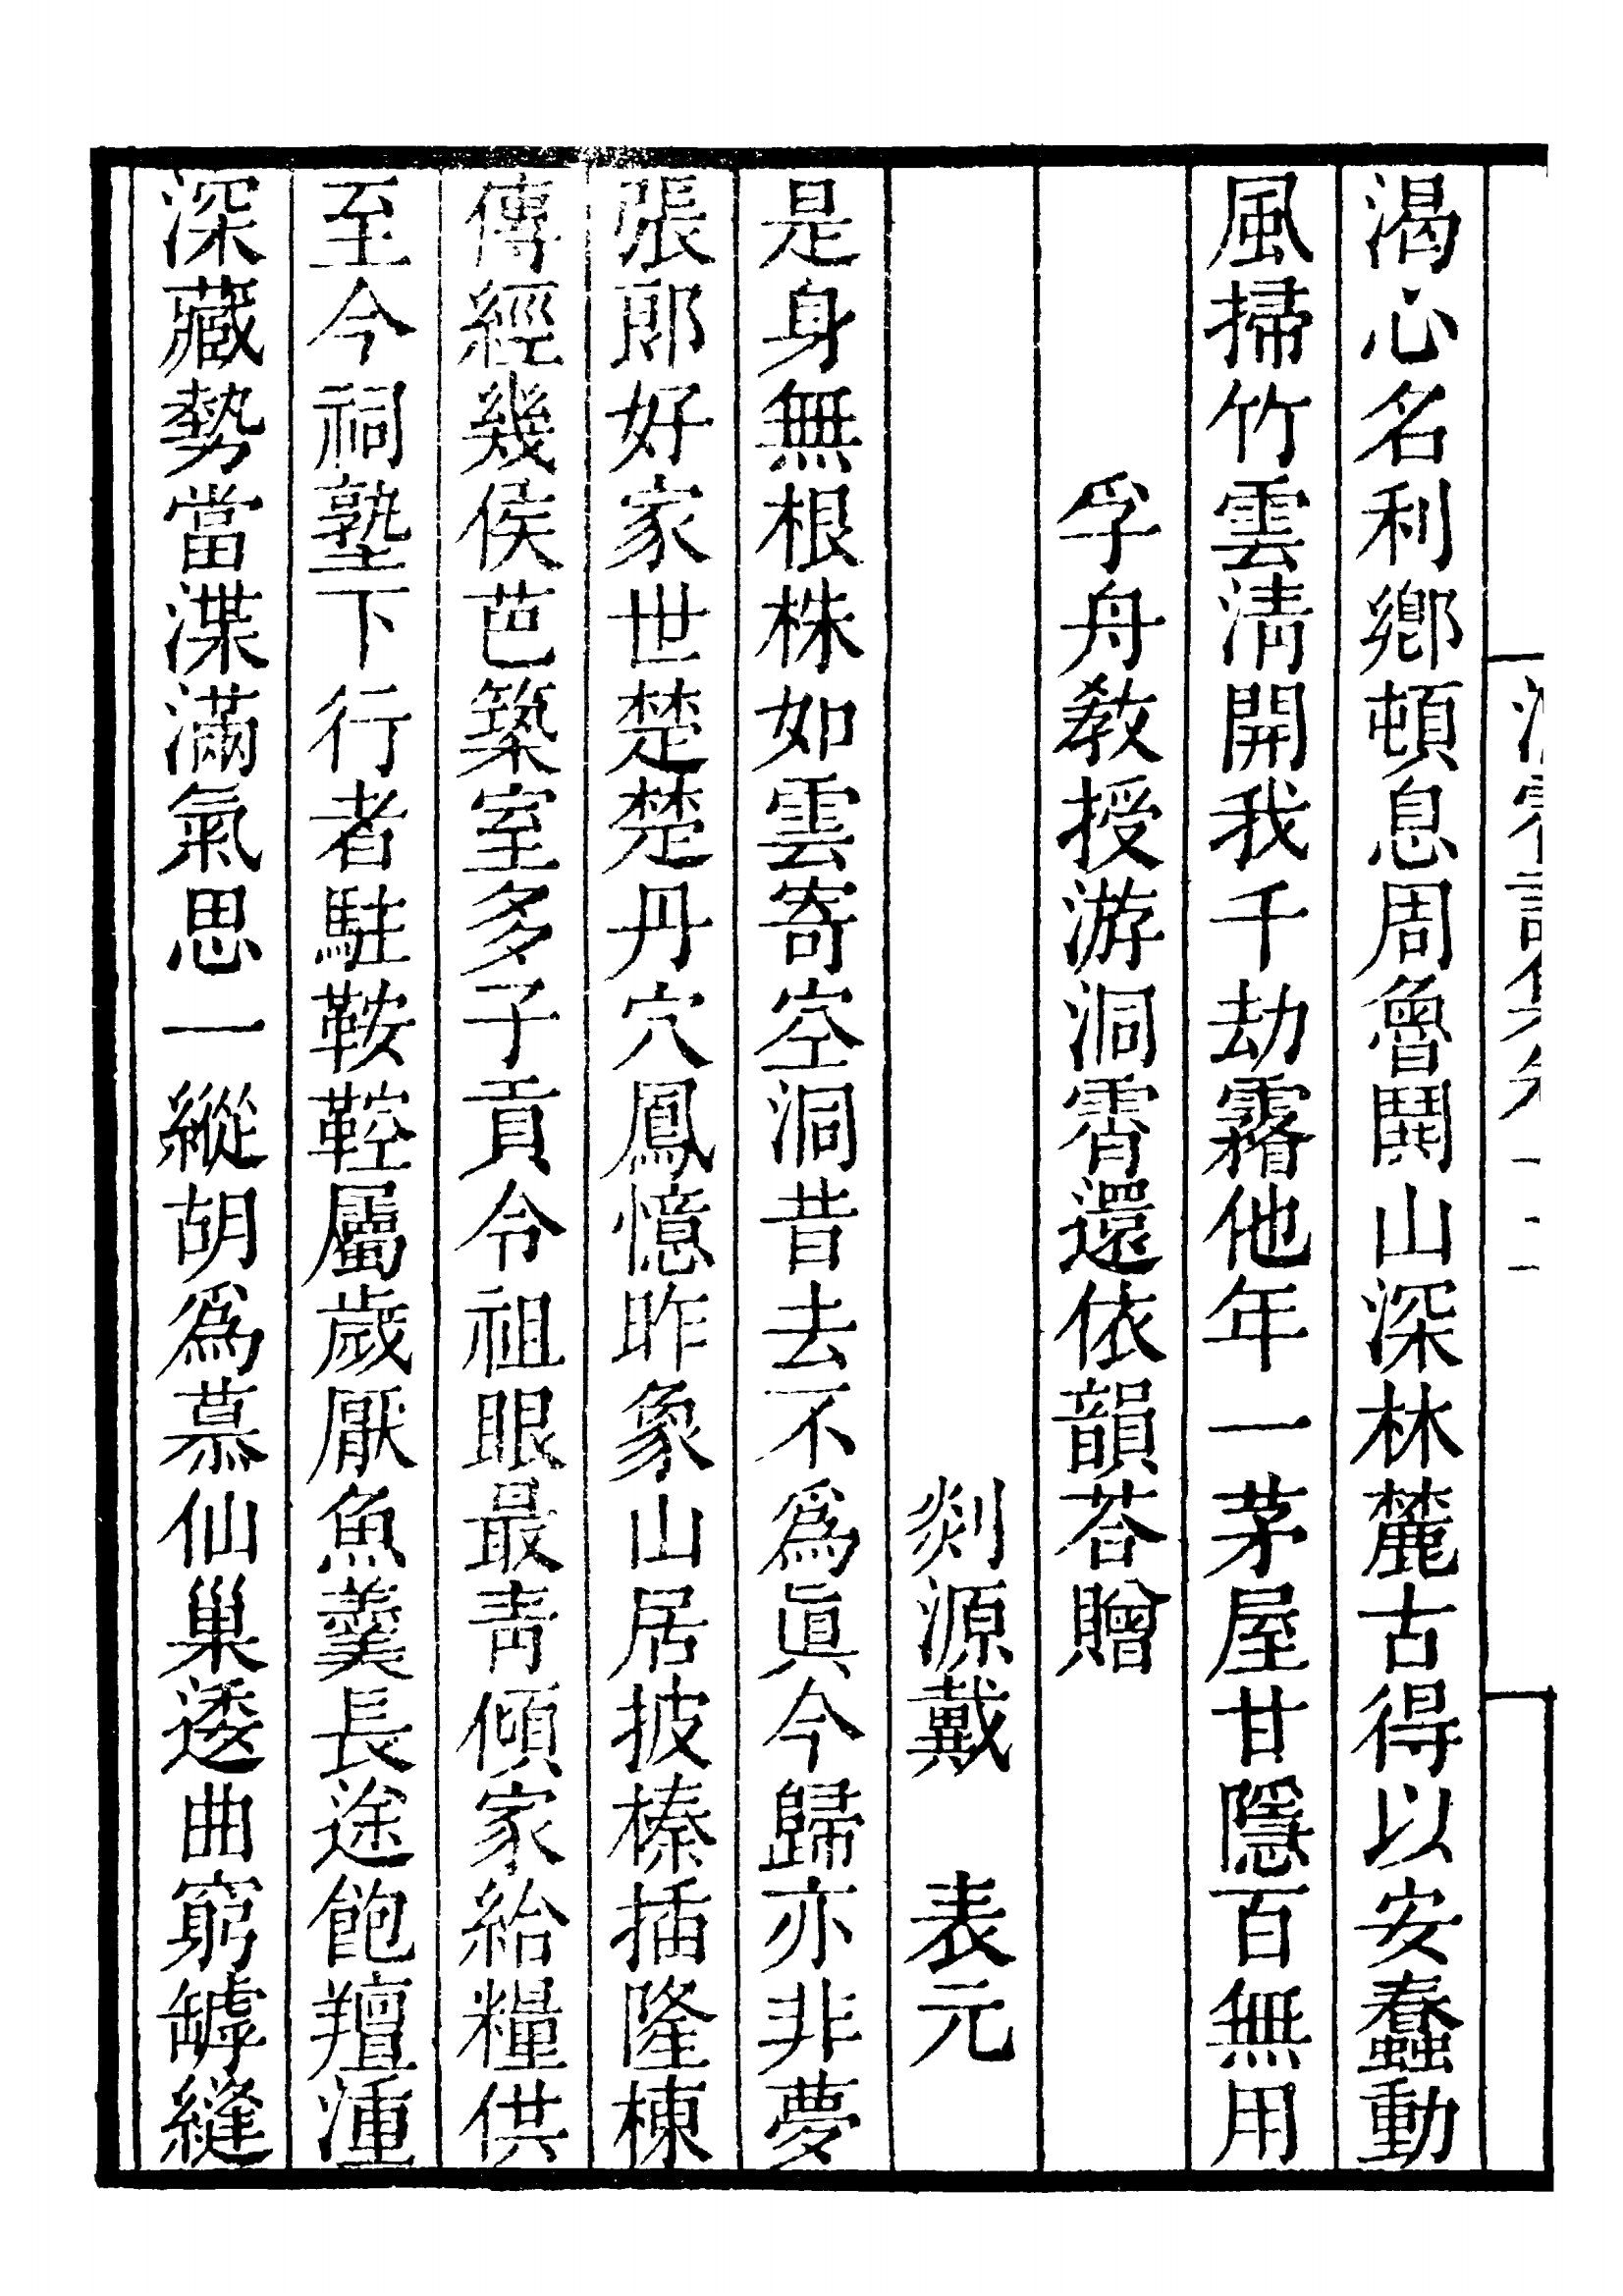 渴心名利鄉頓息周魯鬨山深林麓古得以安蠢動
風掃竹雲清開我千劫霧他年一茅屋甘隱百無用
孚舟敎授游洞霄還依韻荅贈
剡源戴　表元
是身無根株如雲寄空洞昔去不爲眞今歸亦非夢
張郎好家世楚楚丹穴鳳憶昨象山居披榛插隆棟
傳經幾侯芭築室多子貢令祖眼最靑傾家給糧供
至今祠塾下行者駐鞍鞚屬歲厭魚羹長途飽羶湩
深藏勢當渫滿氣思一縱胡爲慕仙巢逶曲窮罅縫